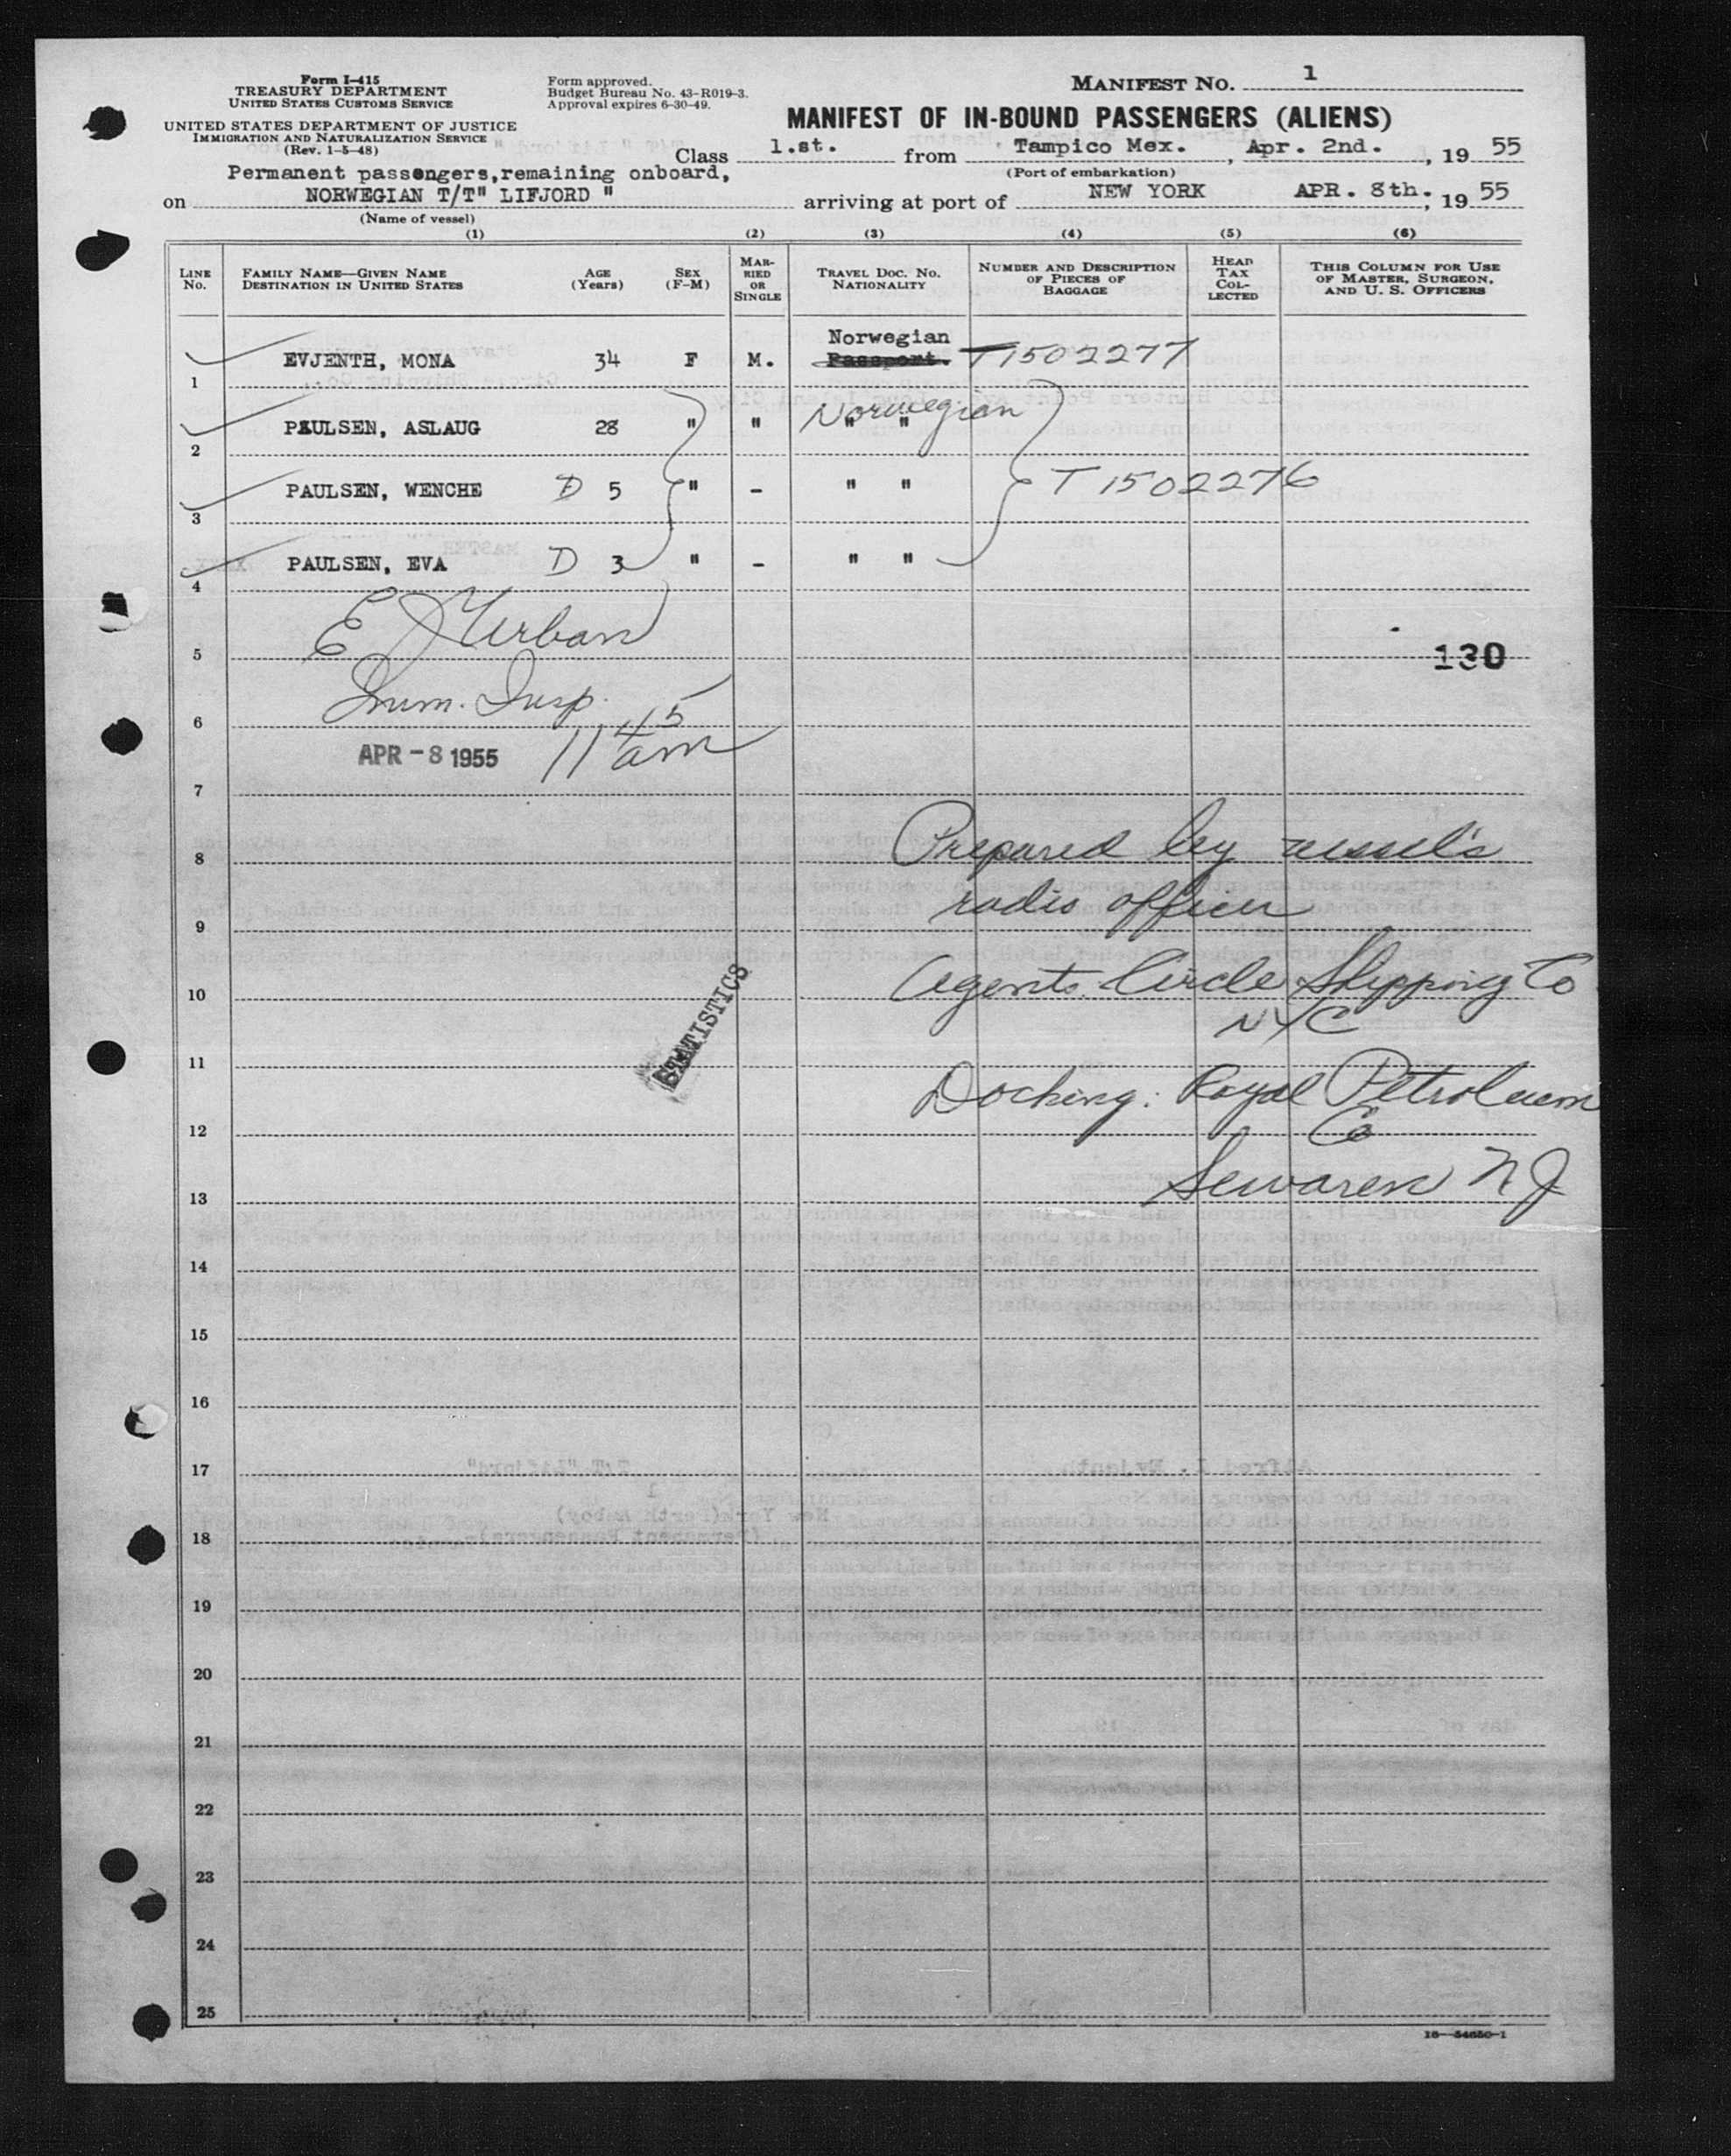 Form I-415
TREASURY DEPARTMENT
UNITED STATES CUSTOMS SERVICE
UNITED STATES DEPARTMENT OF JUSTICE
IMMIGRATION AND NATURALIZATION SERVICE
(Rev. 1-5-48)
Form approved.
Budget Bureau No. 43-R019-3.
Approval expires 6-30-49.
MANIFEST NO. 1
MANIFEST OF IN-BOUND PASSENGERS (ALIENS)
Class 1.st. from Tampico Mex. , Apr. 2nd. , 19 55
(Port of embarkation)
Permanent passengers,remaining onboard,
on NORWEGIAN T/T" LIFJORD " arriving at port of NEW YORK APR. 8th. , 19 55
(Name of vessel)
(1) (2) (3) (4) (5) (6)
LINE NO. FAMILY NAME—GIVEN NAME DESTINATION IN UNITED STATES AGE (Years) SEX (F-M) MARRIED OR SINGLE TRAVEL DOC. NO. NATIONALITY NUMBER AND DESCRIPTION OF PIECES OF BAGGAGE HEAD TAX COLLECTED THIS COLUMN FOR USE OF MASTER, SURGEON, AND U. S. OFFICERS
Norwegian
1 EVJENTH, MONA 34 F M. Passport. T1502277
2 PAULSEN, ASLAUG 28 " " Norwegian " "
3 PAULSEN, WENCHE D 5 " - " " T1502276
4 PAULSEN, EVA D 3 " - " "
5 E J Urban 130
6 Imm. Insp.
7 APR -8 1955 11 45 am
8 Prepared by vessel's
9 radio officer
10 Agents. Circle Shipping Co
NYC
11
STATISTICS
12 Docking: Royal Petroleum
Co
13 Sewaren NJ
14
15
16
17
18
19
20
21
22
23
24
25
16—54650-1